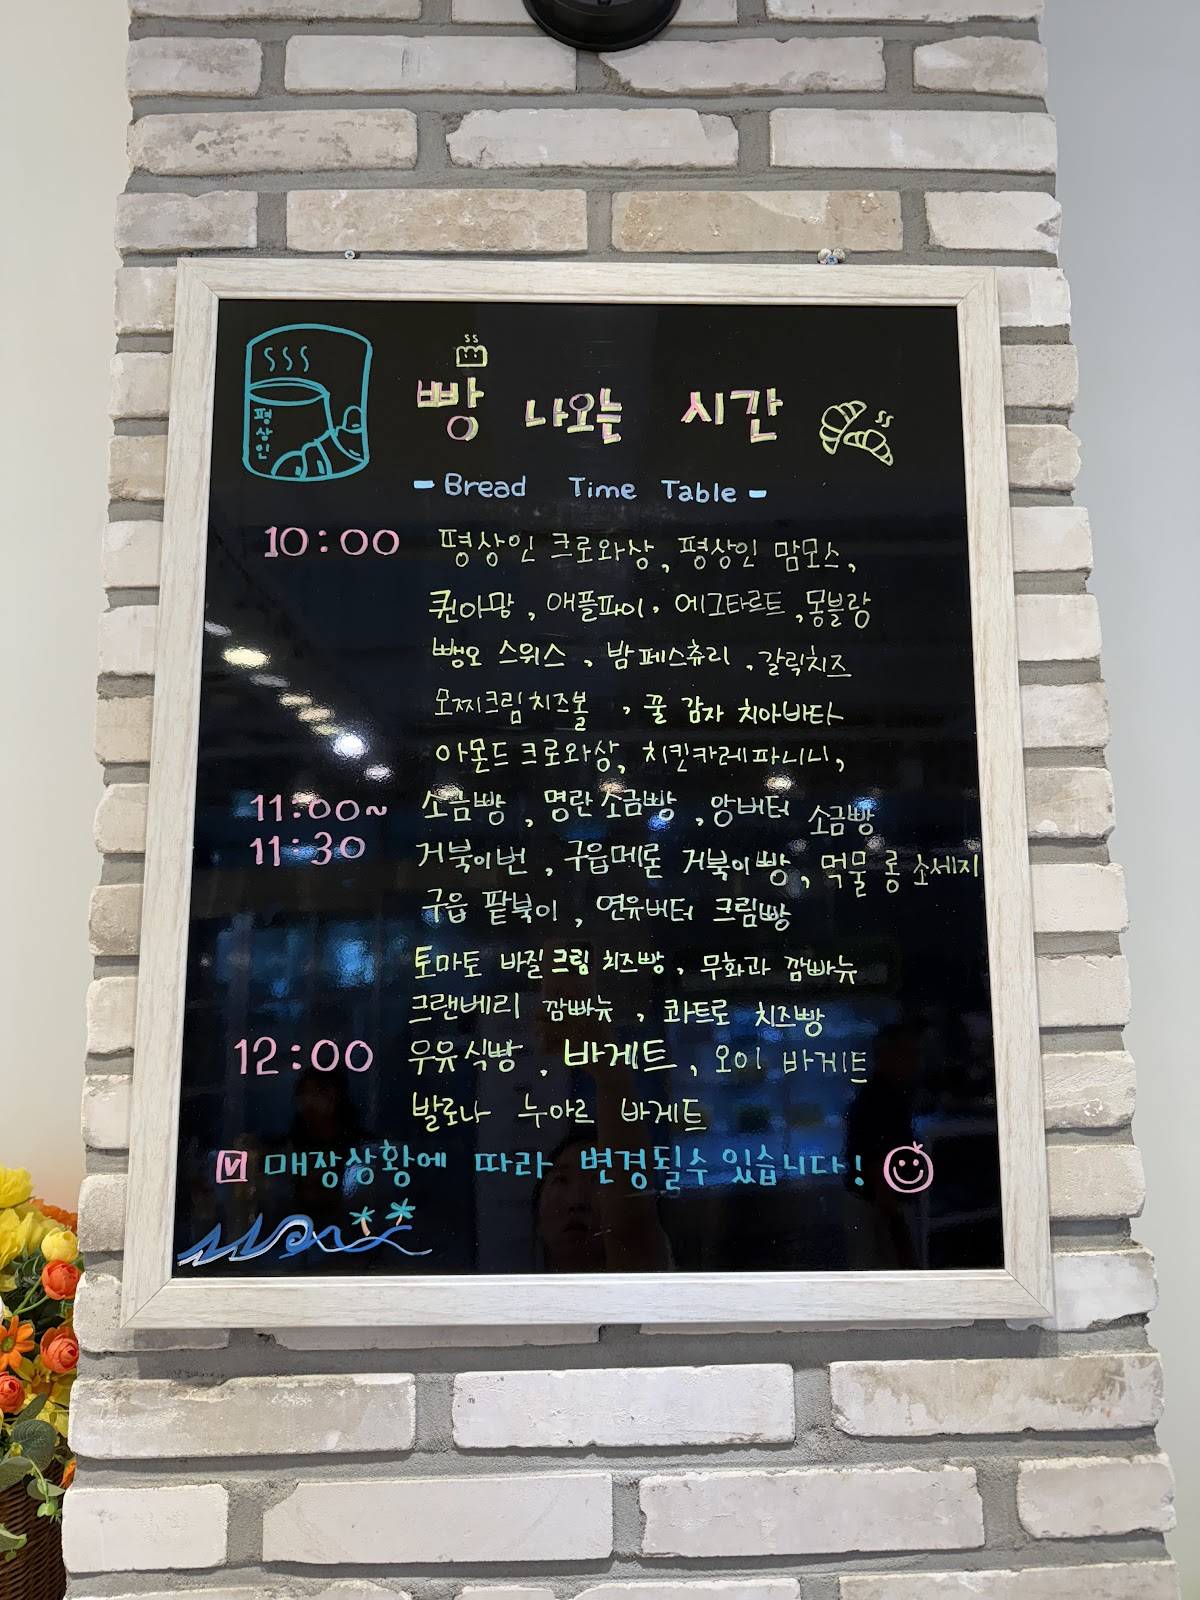 평상인
빵 나오는 시간
- Bread Time Table -
10:00 평상인 크로와상, 평상인 맘모스,
퀸아망, 애플파이, 에그타르트, 몽블랑
뺑오 스위스, 밤페스츄리, 갈릭치즈
모찌크림치즈볼, 꿀 감자 치아바타
아몬드 크로와상, 치킨카레파니니,
11:00~ 소금빵, 명란 소금빵, 앙버터 소금빵
11:30 거북이번, 구읍메론 거북이빵, 먹물 롱 소세지
구읍 팥북이, 연유버터 크림빵
토마토 바질 크림 치즈빵, 무화과 깜빠뉴
크랜베리 깜빠뉴, 콰트로 치즈빵
12:00 우유식빵, 바게트, 오이 바게트
발로나 누아르 바게트
매장상황에 따라 변경될수 있습니다!